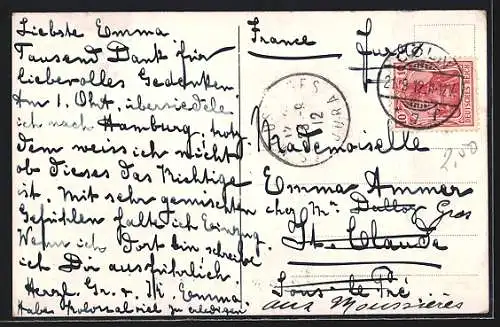 Liebste Emma.
Tausend Dank für
liebevolles Gedenken.
Am 1. Okt. übersiedele
ich nach Hamburg, trotz
dem weiss ich nicht
ob dieses das Richtige
ist. Mit sehr gemischten
Gefühlen halte ich Einzug.
Wenn ich dort bin schreibe
ich Dir ausführlich.
Herzl. Gr. u. K. Emma.
Habe kolossal viel zu erledigen.
France Jura
CÖLN
21.9.12
10 DEUTSCHES REICH 10
JURA
Mademoiselle
Emma Ammer
chez Mr Dalloz Gros
St. Claude
Sous le Pré
aux Moussières
2,00